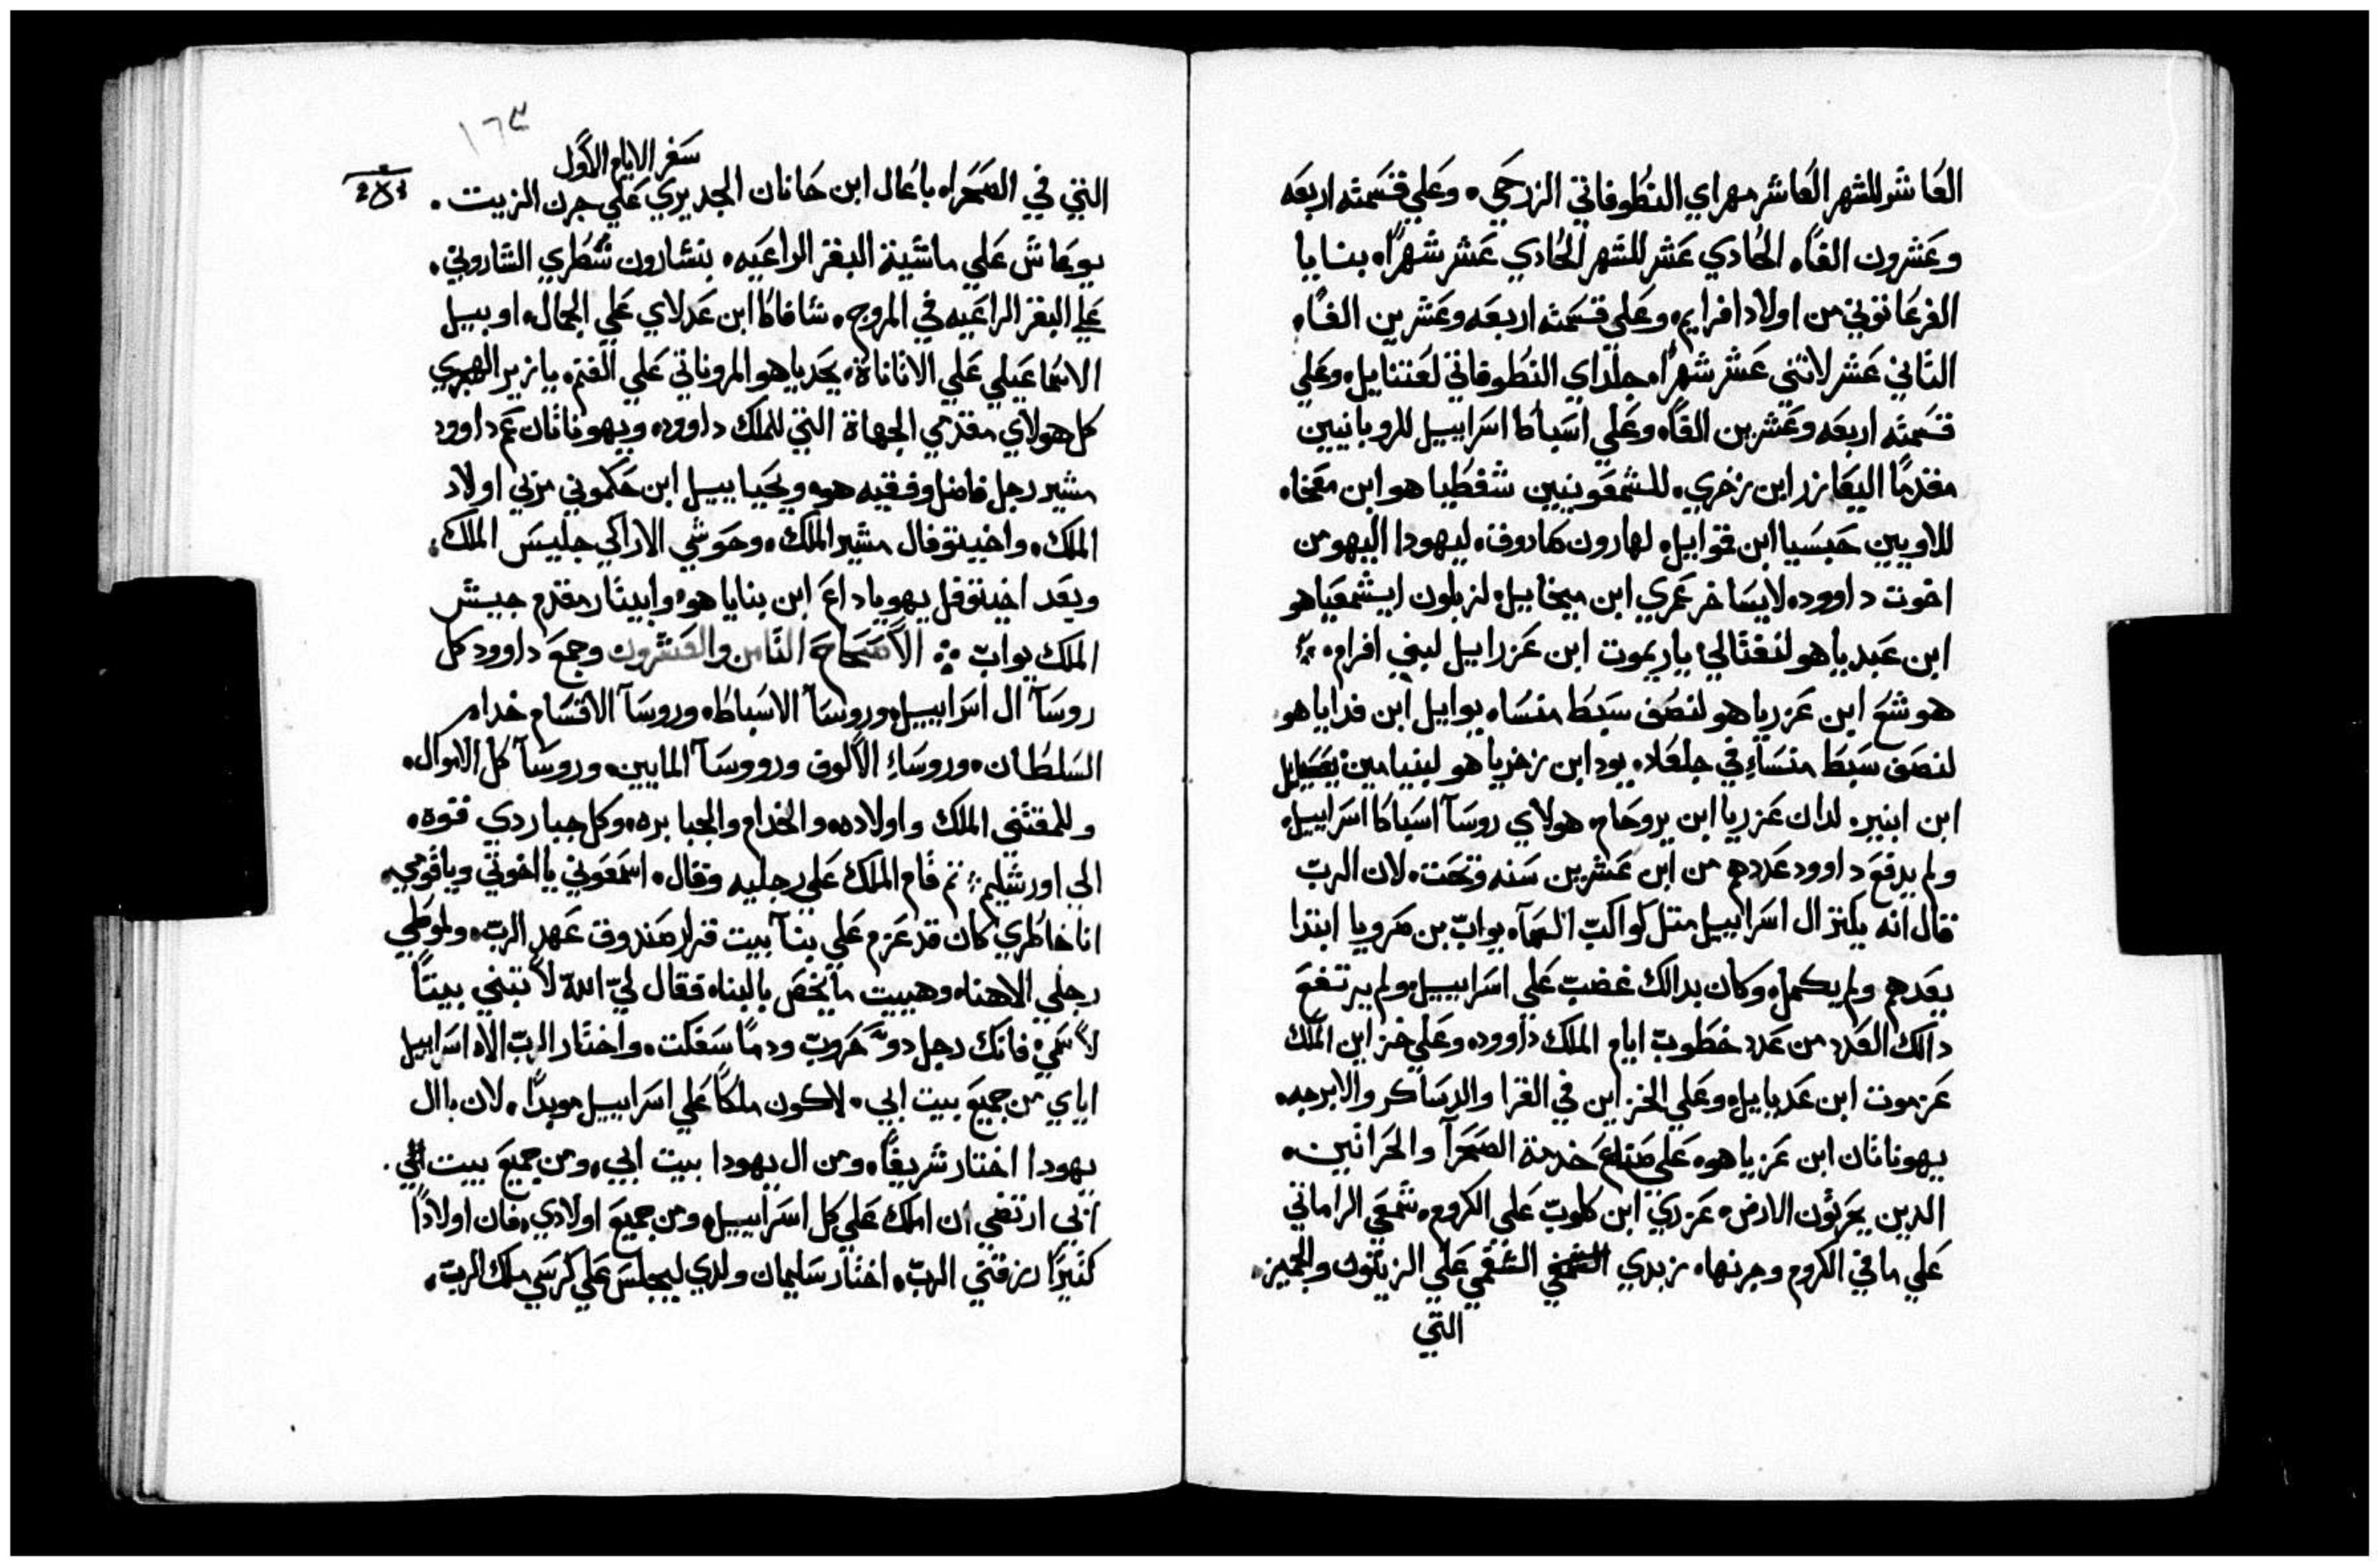 العاشر للشهر العاشر مهراي النطوفاتي الزرحي. وعلي قسمته اربعه
وعشرون الفاً. الحادي عشر للشهر الحادي عشر شهراً. بنايا
الفرعاتوني من اولاد افرايم. وعلي قسمته اربعه وعشرين الفاً.
التاني عشر لاتني عشر شهراً. جلداي النطوفاتي لعتنايل. وعلي
قسمته اربعه وعشرين الفاً. وعلي اسباط اسراييل للروبانيين
مقدماً اليعازر ابن زخري. للشمعونيين شفطيا هو ابن معخا.
للاويين حبسيا ابن قموايل. لهارون صادوق. ليهودا اليهو من
اخوت داوود. لايساخر عمري ابن ميخاييل. لزبلون ايشمعيا هو
ابن عبديا هو لنفتالي ياريموت ابن عزراييل لبني افرام.
هوشع ابن عزريا هو لنصف سبط منسا. يوايل ابن فدايا هو
لنصف سبط منساء في جلعاد. يود ابن زخريا هو لبنيامين يعسيايل
ابن ابنير. لدان عزريا ابن يروحام. هولاي روسآ اسباط اسراييل.
ولم يرفع داوود عددهم من ابن عشرين سنه وتحت. لان الرب
قال انه يكتر ال اسراييل متل كواكب السمآ. يواب بن صرويا ابتدا
يعدهم ولم يكمل. وكان بدالك غضب علي اسراييل. ولم يرتفع
دالك العدد من عدد خطوب ايام الملك داوود. وعلي خزاين الملك
عزموت ابن عديايل. وعلي الخزاين في القرا والدساكر والابرجه.
يهوناتان ابن عزيا هو. علي صناع خدمة الصحرآ والحراتين.
الدين يحرتون الارض. عزري ابن كلوب علي الكروم. شمعي الراماتي
علي ما في الكروم وجرنها. زبدي الشفمي علي الزيتون والجميز.
التي
١٦٣
سفر الايام الاول
التي في الصحراء باعال ابن حانان الجديري علي جرن الزيت.
يوعاش علي ماشية البقر الراعيه. بنشارون شطري الشاروني.
علي البقر الراعيه في المروج. شافاط ابن عدلاي علي الجمال. اوبييل
الاسماعيلي علي الاتاناة. يحديا هو المروناتي علي الغنم. يازيز الهجري
كل هولاي مقدمي الجهاة التي للملك داوود. ويهوناتان عم داوود
مشير رجل فاضل وفقيه هو. ويحياييل ابن حكموني مربي اولاد
الملك. واخيتوفال مشير الملك. وحوشي الاراكي جليس الملك.
وبعد اخيتوفل يهويا داع ابن بنايا هو. وابيتار مقدم جيش
الملك يواب. الاصحاح التامن والعشرون وجمع داوود كل
روسآ ال اسراييل. وروسآ الاسباط. وروسآ الاقسام خدام
السلطان. وروساء الالوف وروسآ المايين. وروسآ كل الاموال.
وللمقتني الملك واولاده. والخدام والجبابره. وكل جبار دي قوة.
الي اورشليم. تم قام الملك علي رجليه وقال. اسمعوني يا اخوتي ويا قومي.
انا خاطري كان قد عزم علي بنآ بيت قرار صندوق عهد الرب. ولموطي
رجلي الاهنا. وهييت ما يخص بالبنا. فقال لي الله لا تبني بيتاً
لاسمي. فانك رجل دو حروب ودماً سفكت. واختار الرب الاه اسراييل
اياي من جميع بيت ابي. لاكون ملكاً علي اسراييل موبداً. لان باال
يهودا اختار شريفاً. ومن ال يهودا بيت ابي. ومن جميع بيت ابي.
بي ارتضي ان املك علي كل اسراييل. ومن جميع اولادي. فان اولاداً
كتيراً رزقني الرب. اختار سليمان ولدي ليجلس علي كرسي ملك الرب.